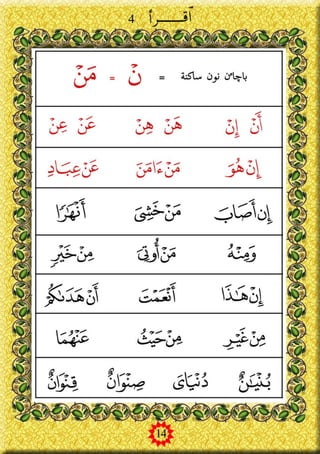 ٱقـــرأ 4
باچاءن نون ساكنة = نْ = مَنْ
أَنْ إِنْ هَنْ هِنْ عَنْ عِنْ
إِنْ هُوَ مَنْ ءَامَنَ عَنْ عِبَادِ
إِنْ أَصَابَ مَنْ خَشِىَ أَنْهَٰرًا
وَمِنْهُ مَنْ أُوتِىَ مِنْ خَيْرٍ
إِنْ هَٰذَا أَنْعَمْتَ أَنْ هَدَىٰكُمْ
مِنْ غَيْرِ مِنْ حَيْثُ عَنْهُمَا
بُنْيَٰنٌ دُنْيَاىَ صِنْوَانٌ قِنْوَانٌ
14